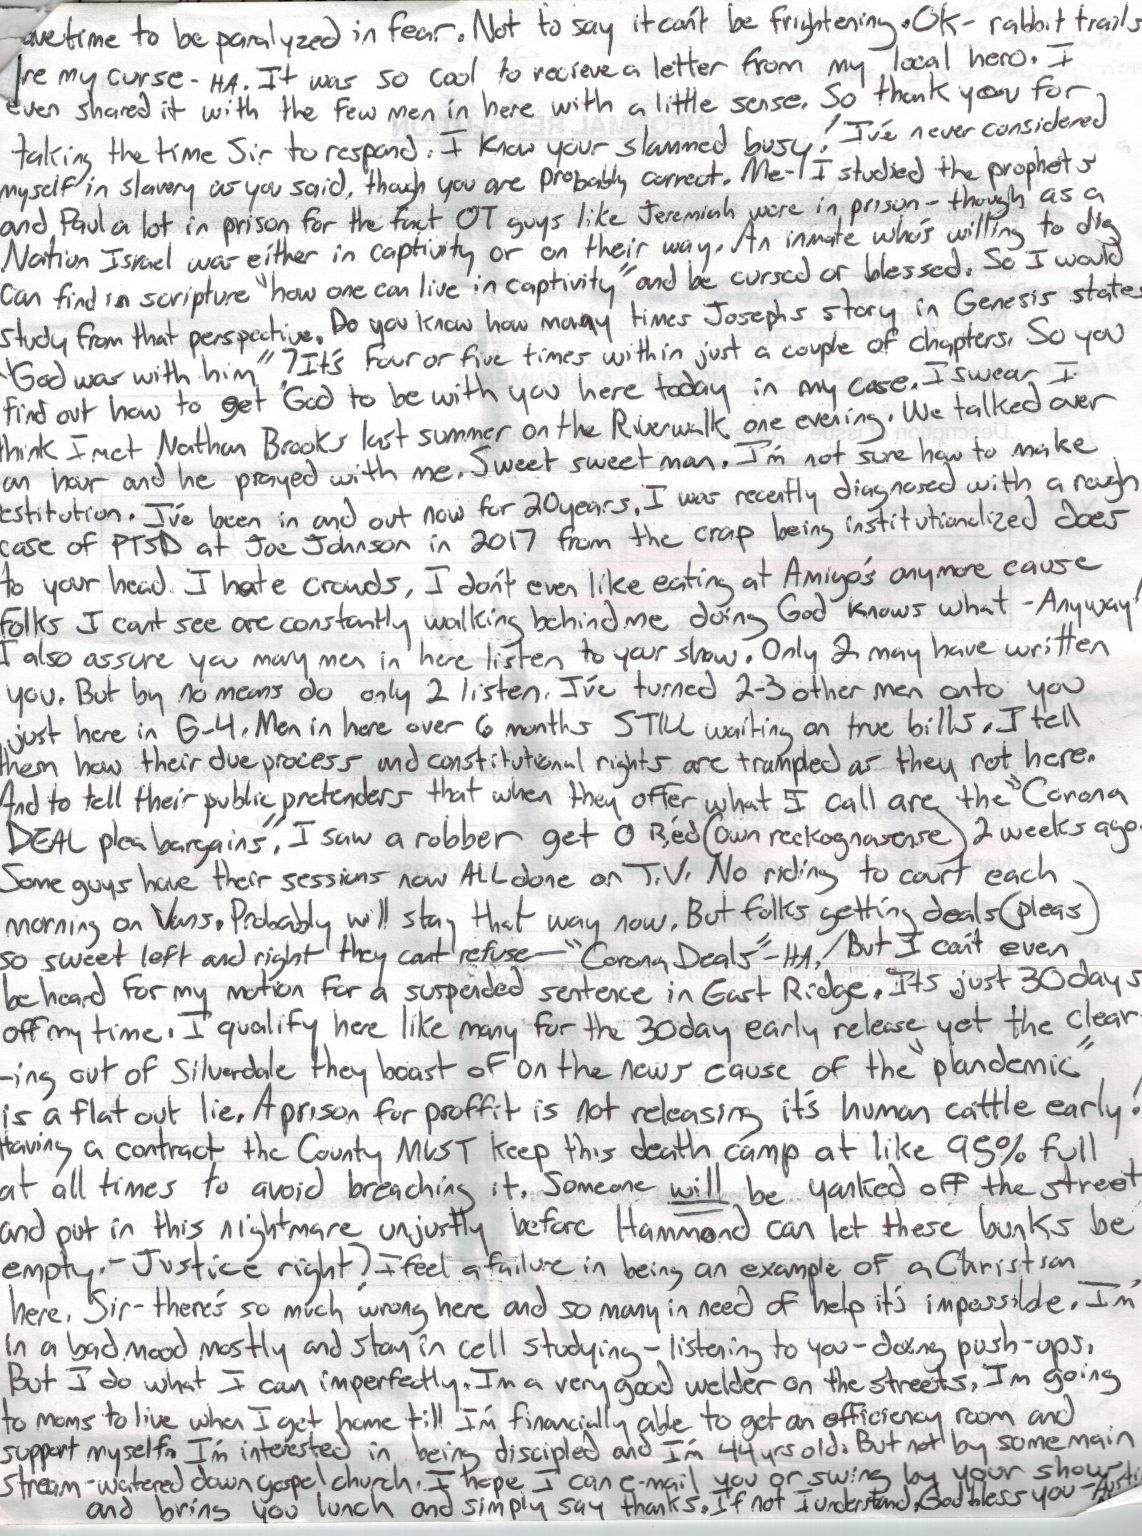 ave time to be paralyzed in fear. Not to say it can't be frightening. OK - rabbit trails
re my curse - HA. It was so cool to recieve a letter from my local hero. I
even shared it with the few men in here with a little sense. So thank you for
taking the time Sir to respond. I know your slammed busy! I've never considered
myself in slavery as you said, though you are probably correct. Me - I studied the prophets
and Paul a lot in prison for the fact OT guys like Jeremiah were in prison - though as a
Nation Israel was either in captivity or on their way. An inmate who's willing to dig
can find in scripture "how one can live in captivity" and be cursed or blessed. So I would
study from that perspective. Do you know how many times Josephs story in Genesis states
"God was with him"? It's four or five times within just a couple of chapters. So you
find out how to get God to be with you here today in my case. I swear I
think I met Nathan Brooks last summer on the Riverwalk one evening. We talked over
an hour and he prayed with me. Sweet sweet man. I'm not sure how to make
estitution. I've been in and out now for 20 years. I was recently diagnosed with a rough
case of PTSD at Joe Johnson in 2017 from the crap being institutionalized does
to your head. I hate crowds, I don't even like eating at Amigo's anymore cause
folks I cant see are constantly walking behind me doing God knows what - Anyway!
I also assure you many men in here listen to your show. Only 2 may have written
you. But by no means do only 2 listen. I've turned 2-3 other men onto you
just here in G-4. Men in here over 6 months STILL waiting on true bills. I tell
them how their due process and constitutional rights are trampled as they not here.
And to tell their public pretenders that when they offer what I call are the "Corona
DEAL plea bargains". I saw a robber get O R'ed (own reckognasense) 2 weeks ago.
Some guys have their sessions now ALL done on T.V. No riding to court each
morning on Vans. Probably will stay that way now. But folks getting deals (pleas)
so sweet left and right they cant refuse - "Corona Deals" - HA! But I can't even
be heard for my motion for a suspended sentence in East Ridge. Its just 30 days
off my time. I qualify here like many for the 30 day early release yet the clear-
-ing out of Silverdale they boast of on the news cause of the "plandemic"
is a flat out lie. A prison for proffit is not releasing it's human cattle early!
Having a contract the County MUST keep this death camp at like 95% full
at all times to avoid breaching it. Someone will be yanked off the street
and put in this nightmare unjustly before Hammond can let these bunks be
empty. - Justice right? I feel a failure in being an example of a Christian
here. Sir - there's so much wrong here and so many in need of help it's impossible. I'm
in a bad mood mostly and stay in cell studying - listening to you - doing push-ups.
But I do what I can imperfectly. I'm a very good welder on the streets. I'm going
to moms to live when I get home till I'm financially able to get an efficiency room and
support myself. I'm interested in being discipled and I'm 44 yrs old. But not by some main
stream - watered down gospel church. I hope I can e-mail you or swing by your show
and bring you lunch and simply say thanks. If not I understand. God bless you - Austi